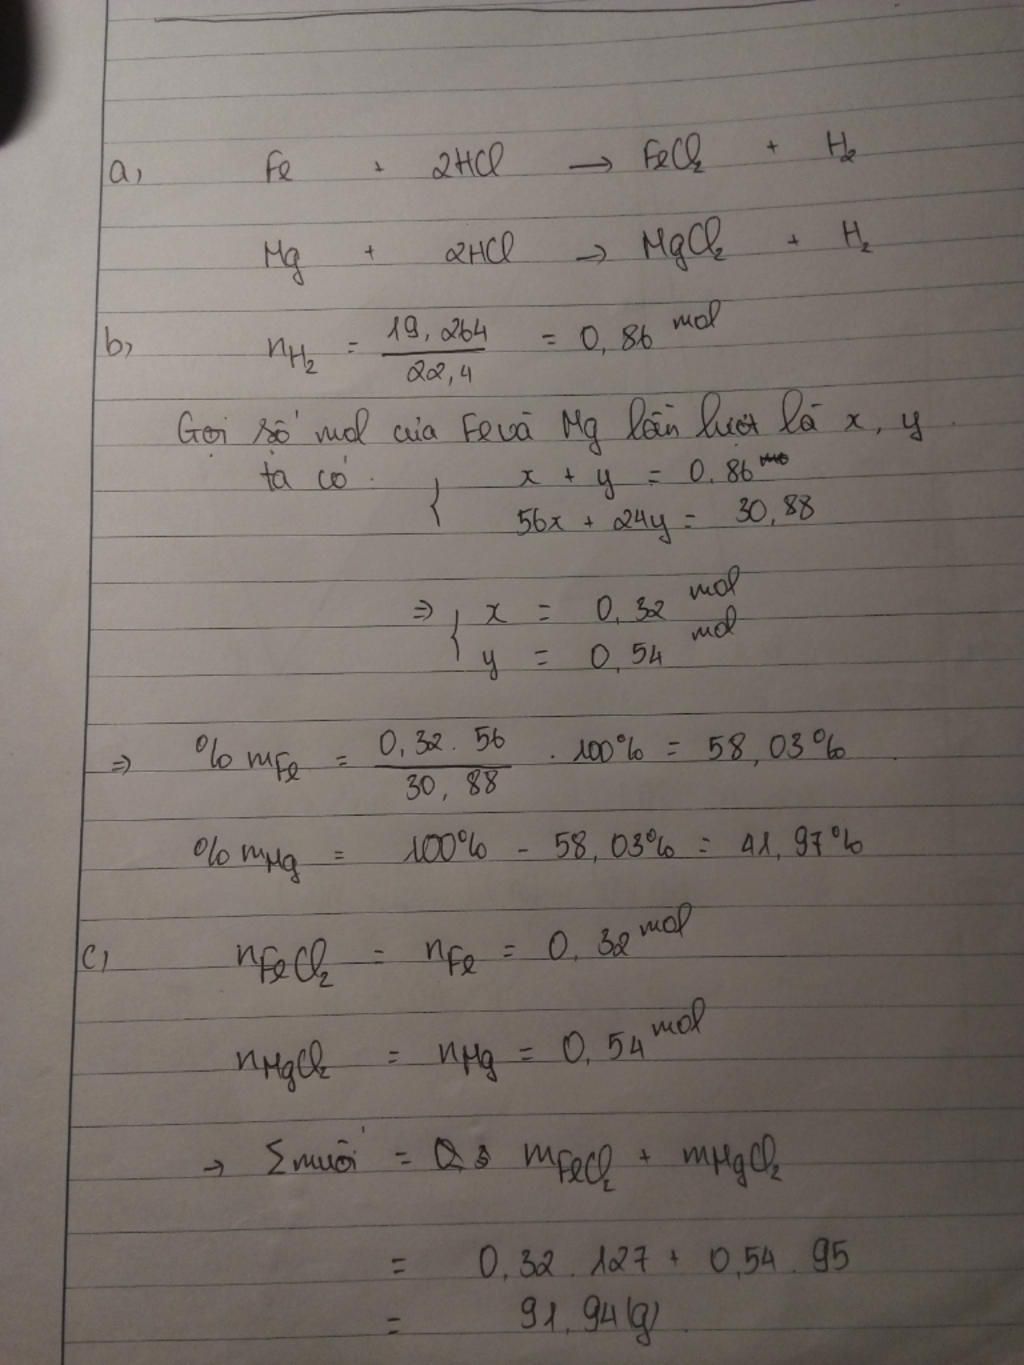 a, Fe + 2HCl → FeCl₂ + H₂
Mg + 2HCl → MgCl₂ + H₂
b, nH₂ = 19,264 / 22,4 = 0,86 mol
Gọi số mol của Fe và Mg lần lượt là x, y.
ta có. { x + y = 0,86
56x + 24y = 30,88
⇒ { x = 0,32 mol
y = 0,54 mol
⇒ % mFe = 0,32 . 56 / 30,88 . 100% = 58,03%
% mMg = 100% - 58,03% = 41,97%
c, nFeCl₂ = nFe = 0,32 mol
nMgCl₂ = nMg = 0,54 mol
→ Σmuối = mFeCl₂ + mMgCl₂
= 0,32 . 127 + 0,54 . 95
= 91,94 (g).